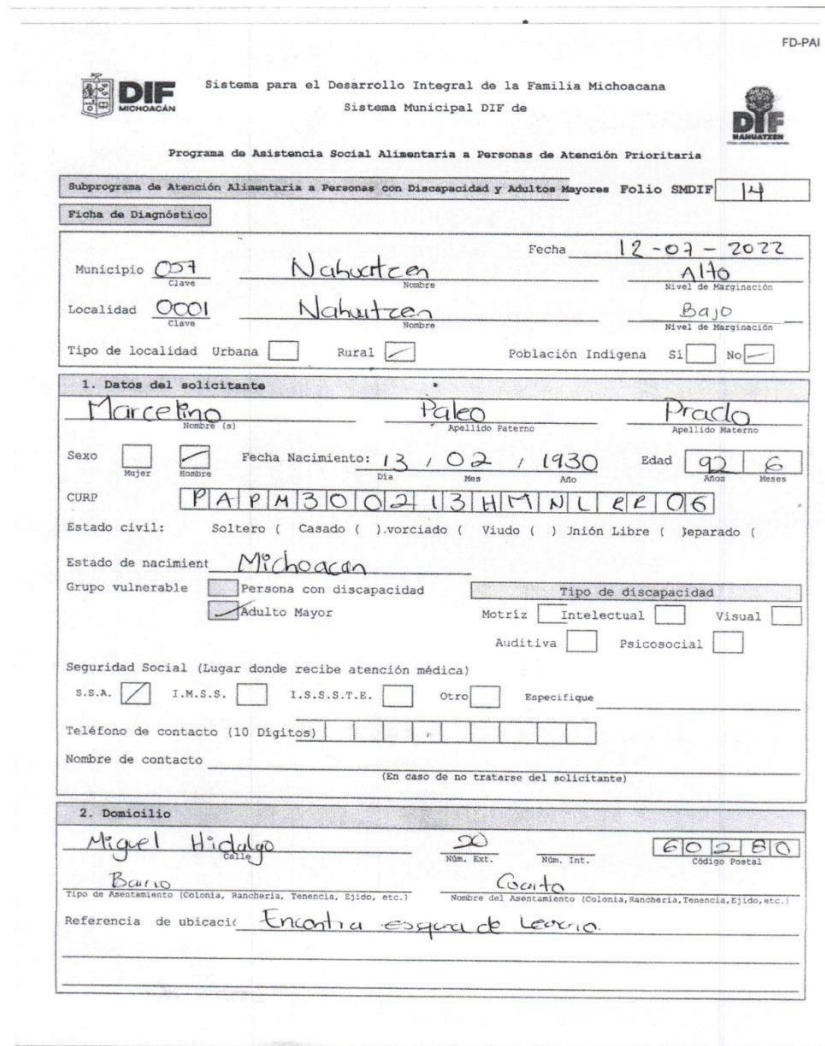 FD-PAI
DIF
MICHOACÁN
Sistema para el Desarrollo Integral de la Familia Michoacana
Sistema Municipal DIF de
DIF
NAHUATZEN
Programa de Asistencia Social Alimentaria a Personas de Atención Prioritaria
Subprograma de Atención Alimentaria a Personas con Discapacidad y Adultos Mayores Folio SMDIF 14
Ficha de Diagnóstico
Fecha 12-07-2022
Municipio 057 Nahuatzen Alto
Clave Nombre Nivel de Marginación
Localidad 0001 Nahuatzen Bajo
Clave Nombre Nivel de Marginación
Tipo de localidad Urbana Rural Población Indigena Si No
1. Datos del solicitante
Marcelino Paleo Prado
Nombre (s) Apellido Paterno Apellido Materno
Sexo Fecha Nacimiento: 13 / 02 / 1930 Edad 92 6
Mujer Hombre Dia Mes Año Años Meses
CURP PAPM300213HMNLRR06
Estado civil: Soltero ( Casado ( ).vorciado ( Viudo ( ) Jnión Libre ( )eparado (
Estado de nacimient Michoacan
Grupo vulnerable Persona con discapacidad Tipo de discapacidad
Adulto Mayor Motríz Intelectual Visual
Auditiva Psicosocial
Seguridad Social (Lugar donde recibe atención médica)
S.S.A. I.M.S.S. I.S.S.S.T.E. Otro Especifique
Teléfono de contacto (10 Dígitos)
Nombre de contacto
(En caso de no tratarse del solicitante)
2. Domicilio
Miguel Hidalgo 20 60280
Calle Núm. Ext. Núm. Int. Código Postal
Barrio
Tipo de Asentamiento (Colonia, Ranchería, Tenencia, Ejido, etc.) Nombre del Asentamiento (Colonia, Ranchería, Tenencia, Ejido, etc.)
Referencia de ubicació Encontra esquina de